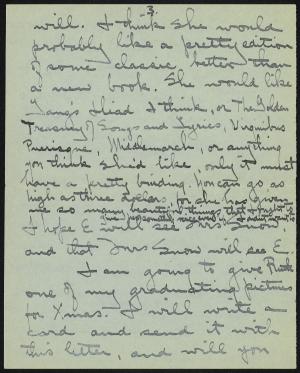 3.
will. I think she would
probably like a pretty edition
of some classic better than
a new book. She would like
Lang's Iliad I think, or The Golden
Treasury of Songs and Lyrics,
Middlemarch, or anything
you think she'd like, only it must
have a pretty binding. You can go as
high as three dollars, for she has given
me so many beautiful things that I might
I hope E will see Miss Snow
and that Miss Snow will see E.
I am going to give Ruth
one of my graduating pictures
for Xmas. I will write a
card and send it with
this letter, and will you